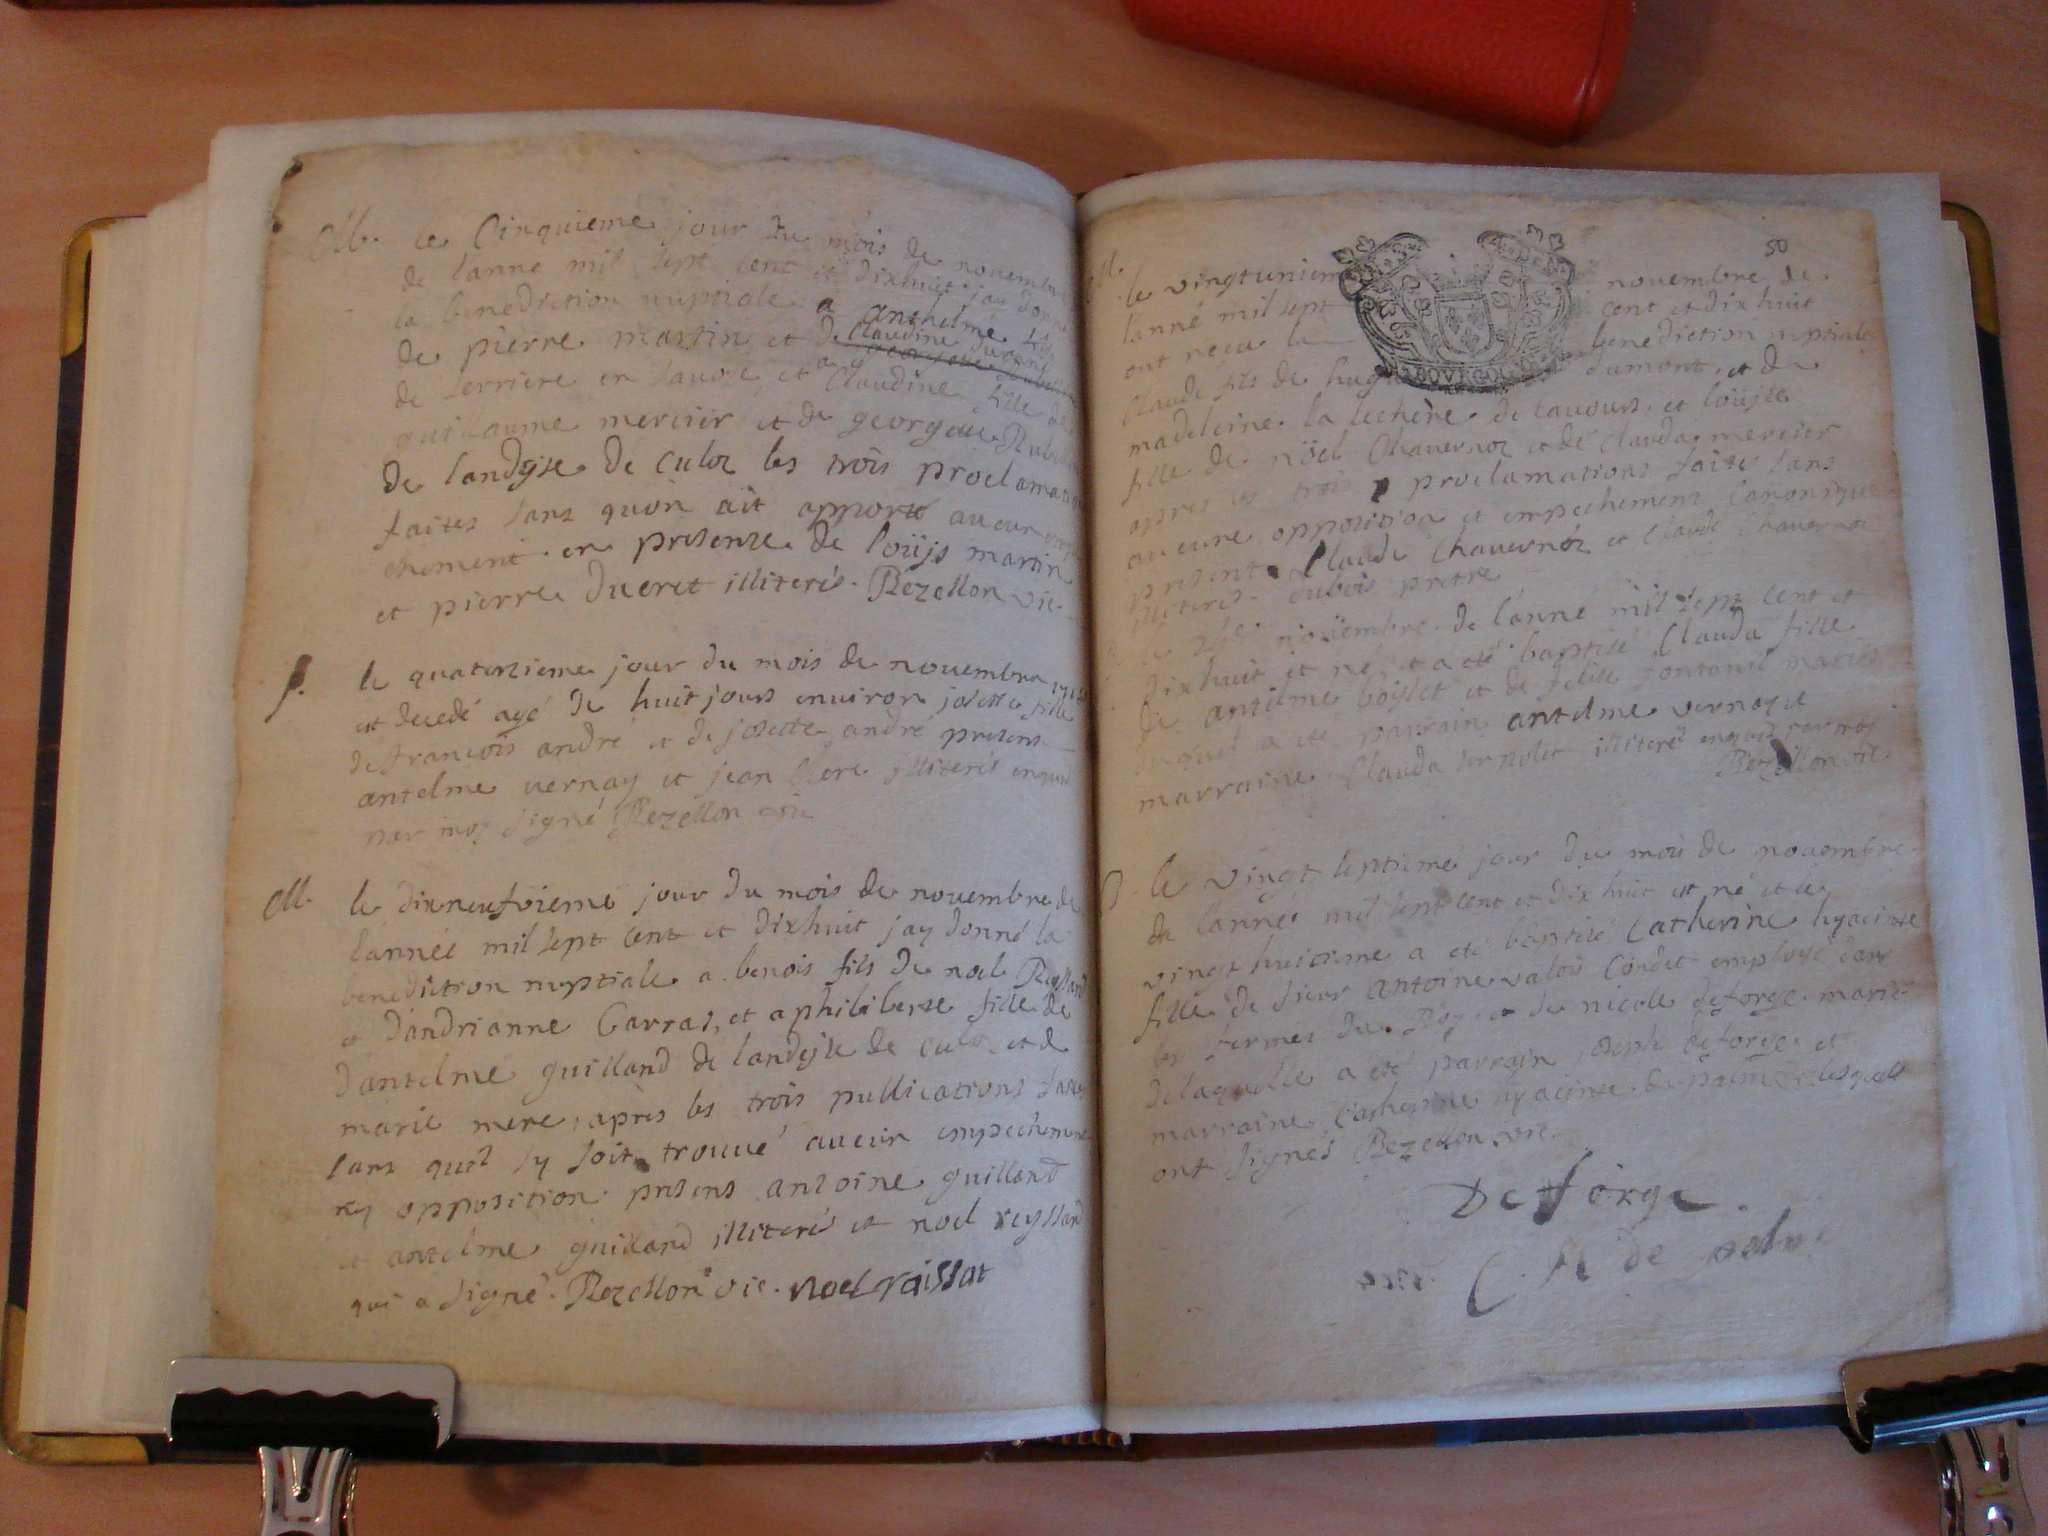 M. le Cinquieme jour du mois de novembre
de lanné mil sept cent et dixhuit jay donné
la benediction nuptiale a anthelme fils
de pierre martin et de Claudine
de serriere en savoÿe et a Claudine fille de
guillaume mercier et de george
de landÿse de culoz les trois proclamations
faites sans quon ait apporté aucun
chement en presence de loüis martin
et pierre ducret illiterés. Bezellon vic.
S. le quatorzieme jour du mois de novembre 1718
est decedé agé de huit jours environ josette fille
de francois andré et de josette andré presens
antelme vernay et jean Clere illiterés enquis
par moy signé Bezellon vic
M. le dixneufvieme jour du mois de novembre de
lannéé mil sept cent et dixhuit jay donné la
benediction nuptiale a benois fils de noel Reyssard
et dandrianne Carraz, et a philiberte fille de
dantelme guilland de landÿse de culoz et de
marie mere, après les trois publications faites
sans quil sy soit trouvé aucun empechement
ny opposition. presens antoine guilland
et antelme guilland illiterés et noel reyssard
qui a signé. Bezellon vic. noel raissat
50
M. le vingtuniem novembre de
lanné mil sept cent et dixhuit
ont reçu la benediction nuptiale
Claude fils de hugue dumont, et de
madeleine la lechere de lavours, et loüise
fille de nöel Chavernoz et de Clauda mercier
apres les trois proclamations faite sans
aucune opposition et empechement canonique
present Claude Chavernoz et Claude Chavernoz
illiteres. dubois pretre
B le 24e novembre de lanné mil sept cent et
dixhuit et né et a eté baptisé Clauda fille
de antelme boisset et de felise fontanil mariés
duquel a eté parrain antelme vernay et
marraine Clauda illiteres enquis par moy
Bezellon vic.
B. le vingt septieme jour du mois de novembre
de lannéé mil sept cent et dix huit est né et le
vingt huitieme a eté baptisé Catherine hyacinte
fille de sieur antoine valois Condet employé dans
les fermes du Roy et de nicole deforge mariés
de laquelle a eté parrain joseph deforge et
marraine Catherine hyacinte de lesquels
ont signés Bezellon vic.
De forge.
C h de